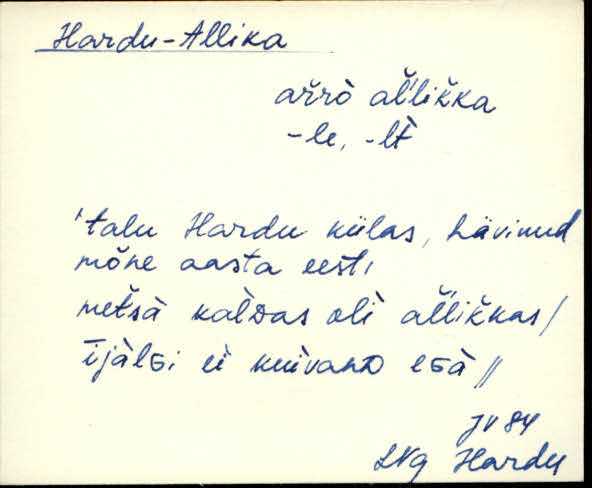 Hardu-Allika
aŕrò aĺ̆lik̆ka
-le, -lt̀
'talu Hardu külas, hävinud
mõne aasta eest,
metsà kàlᴅas olì aĺ̆lik̆kas/
ījàlɢi ei kuivanᴅ eɢà //
JV 84
LNg Hardu